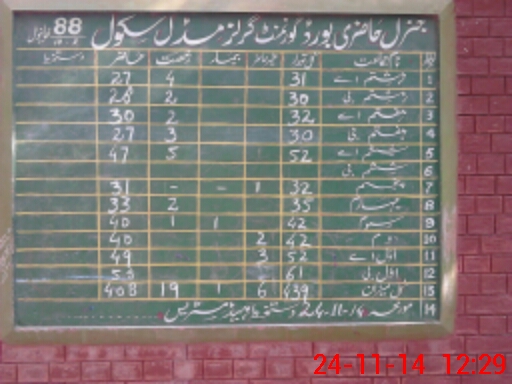 جنرل حاضری بورڈ گورنمنٹ گرلز مڈل سکول 88
نام جماعت کل تعداد غیر حاضر بیمار رخصت حاضر دستخط
1 ہشتم اے 31 4 27
2 ہشتم بی 30 2 28
3 ہفتم اے 32 2 30
4 ہفتم بی 30 3 27
5 ششم اے 52 5 47
6 ششم بی
7 پنجم 32 1 - - 31
8 چہارم 35 2 33
9 سوئم 42 1 1 40
10 دوم 42 2 40
11 اول اے 52 3 49
12 اول بی 61
13 کل میزان 439 6 1 19 408
14 مورخہ 24-11-14 دستخط ہیڈمسٹریس
24-11-14 12:29